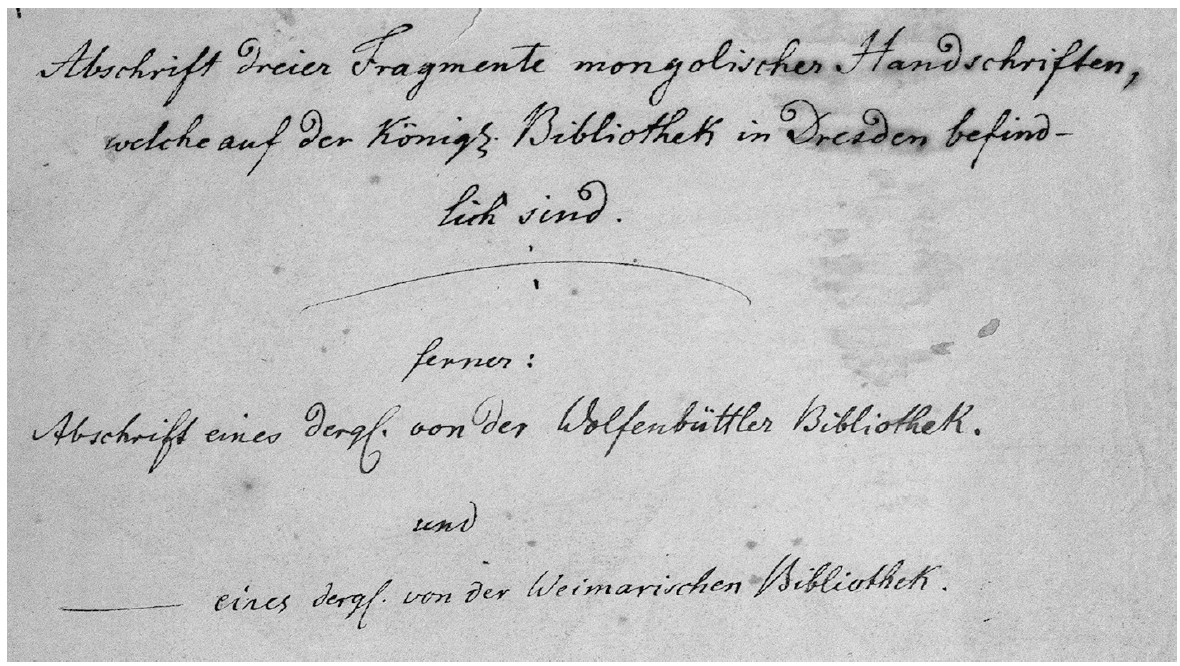 Abschrift dreier Fragmente mongolischer Handschriften,
welche auf der Königl. Bibliothek in Dresden befind-
lich sind.
ferner:
Abschrift eines dergl. von der Wolfenbüttler Bibliothek.
und
——— eines dergl. von der Weimarischen Bibliothek.